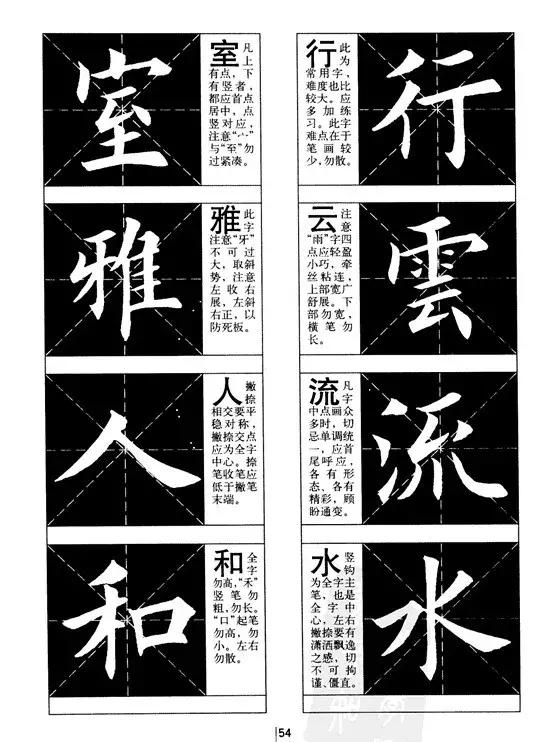 室
室 凡上
有点，下
有竖者，
都应首点
居中，点
竖对应，
注意“宀”
与“至”勿
过紧凑。
雅
雅 此字
注意“牙”
不可过
大，取斜
势，注意
左收右
展，左斜
右正，以
防死板。
人
人 撇捺
相交要平
稳对称，
撇捺交点
应为全字
中心。捺
笔收笔应
低于撇笔
末端。
和
和 全字
勿高，“禾”
竖笔勿
粗，勿长。
“口”起笔
勿高，勿
小。左右
勿散。
行 此为
常用字，
难度也比
较大。应
多加练
习。此字
难点在于
笔画较
少，勿散。
行
云 注意
“雨”字四
点应轻盈
小巧，牵
丝粘连，
上部宽广
舒展。下
部勿宽，
横笔勿
长。
雲
流 凡字
中点画众
多时，切
忌单调统
一，应首
尾呼应，
各有形
态、各有
精彩，顾
盼通变。
流
水 竖钩
为全字主
笔，也是
全字中
心，左右
撇捺要有
潇洒飘逸
之感，切
不可拘
谨、僵直。
水
54